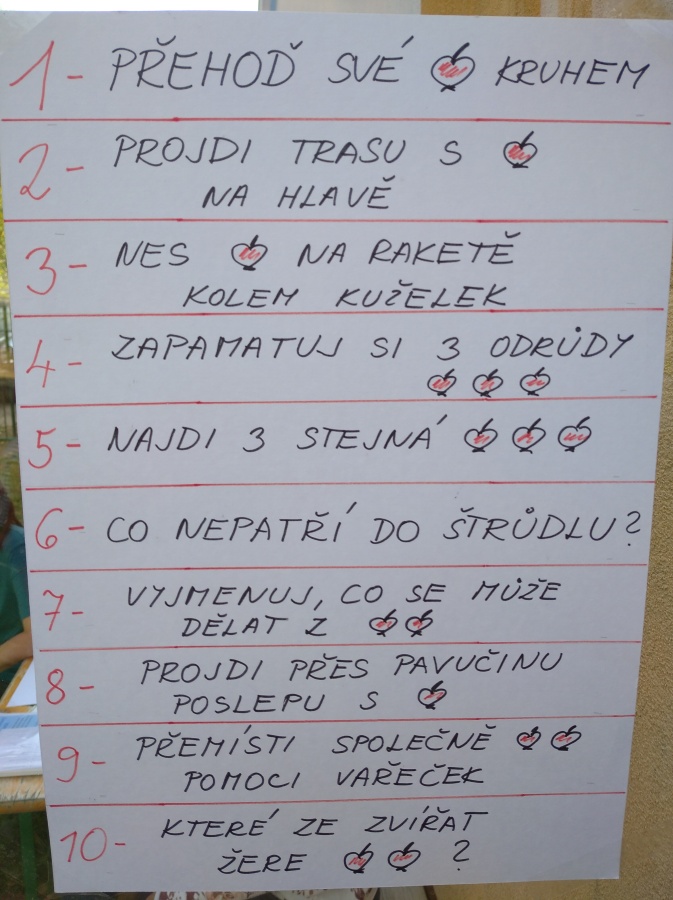 1- PŘEHOĎ SVÉ KRUHEM
2- PROJDI TRASU S
NA HLAVĚ
3- NES NA RAKETĚ
KOLEM KUŽELEK
4- ZAPAMATUJ SI 3 ODRŮDY
5- NAJDI 3 STEJNÁ
6- CO NEPATŘÍ DO ŠTRŮDLU?
7- VYJMENUJ, CO SE MŮŽE
DĚLAT Z
8- PROJDI PŘES PAVUČINU
POSLEPU S
9- PŘEMÍSTI SPOLEČNĚ
POMOCI VAŘEČEK
10- KTERÉ ZE ZVÍŘAT
ŽERE ?